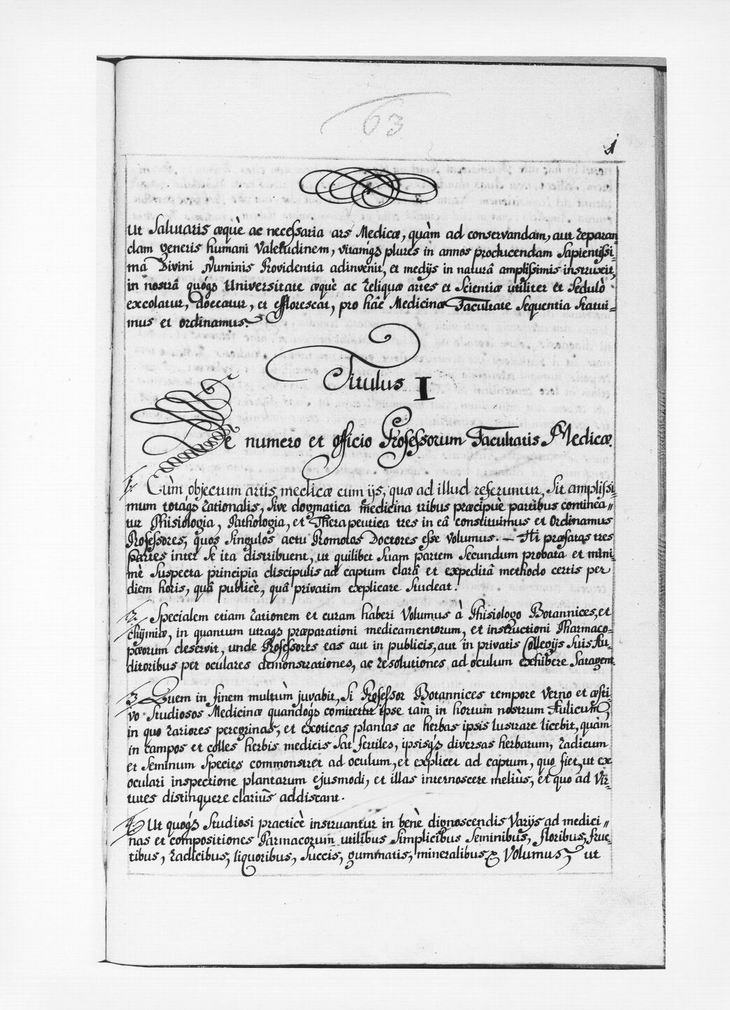 63
1
Ut Salutaris æquè ac necessaria ars Medica, quàm ad conservandam, aut reparan
dam generis humani Valetudinem, vitamq̃ plures in annos producendam Sapientissi⸗
ma Divini Numinis Providentia adinvenit, et medijs in naturâ amplissimis instruxit,
in nostrâ quóq̃ Universitate æquè ac reliquæ artes et Scientiæ utiliter et Sedulò
excolatur, doceatur, et efflorescat, pro hac Medicinæ Facultate Sequentia Statui⸗
mus et ordinamus.
Titulus I
De numero et officio Professorum Facultatis Medicæ
1. Cùm objectum artis medicæ cum ijs, quæ ad illud referuntur, Sit amplissi⸗
mum totaq̃ rationalis, sive dogmatica medicina tribus præcipuè partibus continea⸗
tur Phisiologia, Pathologia, et Therapeutica tres in eâ constituimus et Ordinamus
Professores, quos Singulos actu Promotos Doctores esse volumus. – Hi præfatas tres
partes inter se ita distribuent, ut quilibet Suam partem Secundum probata et mini⸗
mè Suspecta principia discipulis ad captum clarâ et expeditâ methodo certis per
diem horis, quâ publicè, quâ privatim explicare Studeat.
2. Specialem etiam rationem et curam haberi Volumus à Phisiologo Botannices, et
chijmiæ, in quantum utraq̃ præparationi medicamentorum, et instructioni Pharmaco⸗
pæorum deservit, unde Professores eas aut in publicis, aut in privatis Collegijs Suis Au⸗
ditoribus per oculares demonstrationes, ac resolutiones ad oculum exhibere Satagent.
3. Quem in finem multùm juvabit, Si Professor Botannices tempore Verno et æsti⸗
vo Studiosos Medicinæ quandoq̃ comitetur ipse tam in hortum nostrum Aulicum
in quo rariores peregrinas, et exoticas plantas ac herbas ipsis lustrare licebit, quàm
in campos et colles herbis medicis Sat fertiles, ipsisq̃ diversas herbarum, radicum
et Seminum Species commonstret ad oculum, et explicet ad captum, quo fiet, ut ex
oculari inspectione plantarum ejusmodi, et illas internoscere meliùs, et quo ad Vir⸗
tutes distinguere clariùs addiscant.
4. Ut quóq̃ Studiosi practicè instruantur in benè dignoscendis Varijs ad medici⸗
nas et compositiones Farmacorum utilibus Simplicibus Seminibus, floribus, fruc⸗
tibus, radicibus, liquoribus, Succis, gummatis, mineralibus &c Volumus, ut